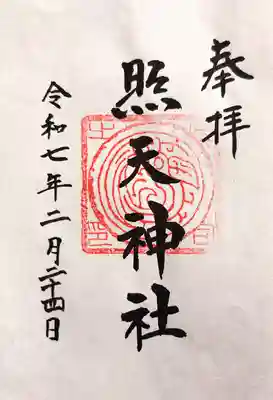 奉拝
照天神社
令和七年二月二十四日